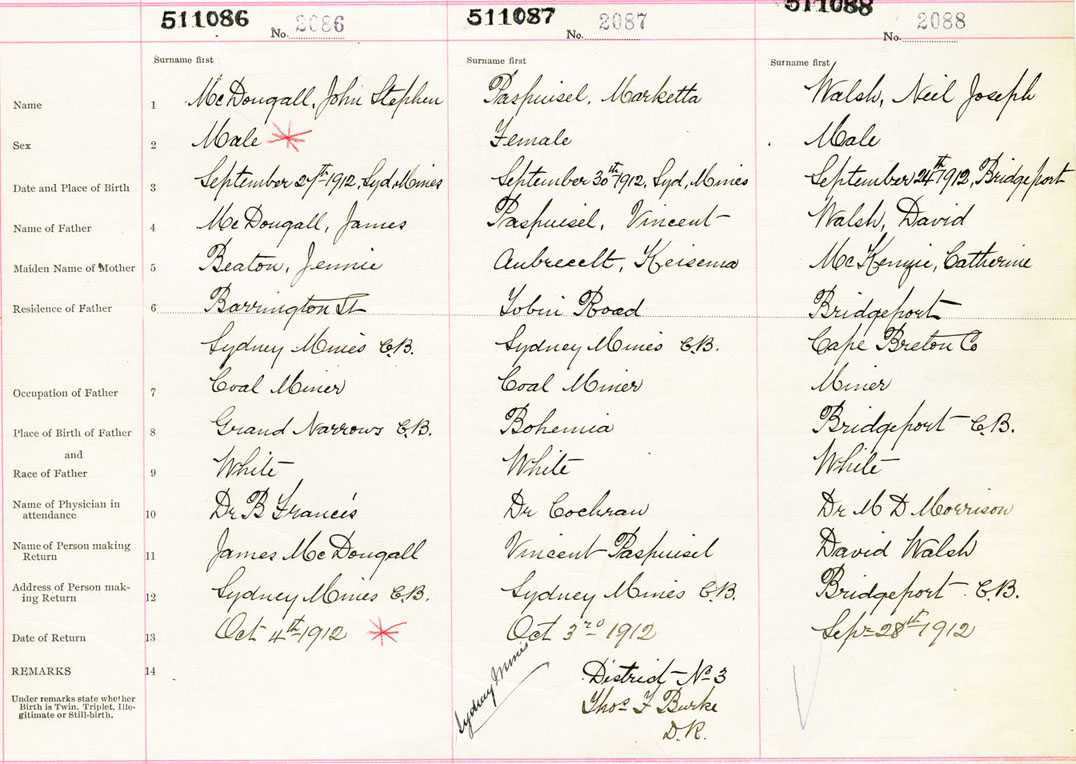 511086 511087 511088
No. 2086 No. 2087 No. 2088
Surname first Surname first Surname first
Name 1 McDougall, John Stephen Paspuisel, Marketta Walsh, Neil Joseph
Sex 2 Male Female Male
Date and Place of Birth 3 September 27th 1912, Syd, Mines September 30th 1912, Syd, Mines September 24th 1912, Bridgeport
Name of Father 4 McDougall, James Paspuisel, Vincent Walsh, David
Maiden Name of Mother 5 Beaton, Jennie McKenzie, Catherine
Residence of Father 6 Barrington St Tobin Road Bridgeport
Sydney Mines C.B. Sydney Mines C.B. Cape Breton Co
Occupation of Father 7 Coal Miner Coal Miner Miner
Place of Birth of Father 8 Grand Narrows C.B. Bohemia Bridgeport C.B.
and
Race of Father 9 White White White
Name of Physician in
attendance 10 Dr B Francis Dr Cochran Dr M D Morrison
Name of Person making
Return 11 James McDougall Vincent Paspuisel David Walsh
Address of Person mak-
ing Return 12 Sydney Mines C.B. Sydney Mines C.B. Bridgeport C.B.
Date of Return 13 Oct 4th 1912 Oct 3rd 1912 Sepr 28th 1912
REMARKS 14
Sydney Mines
District No 3
Under remarks state whether
Birth is Twin, Triplet, Ille-
gitimate or Still-birth.
Thos F Burke
D.R.